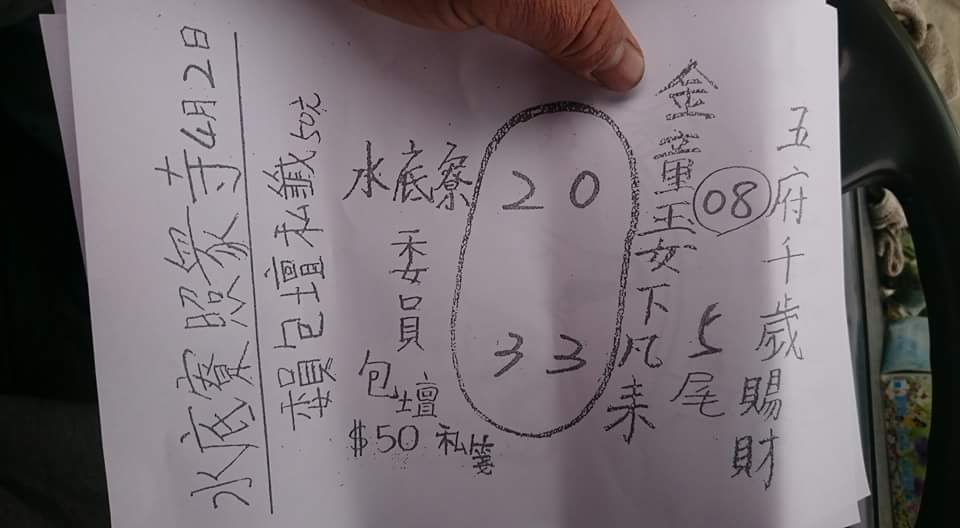 五府千歲賜財
08
5尾
金童玉女下凡來
20
33
水底寮
委員
包壇
$50 私箋
委員包壇私籤50元
水底寮照眾寺4月2日